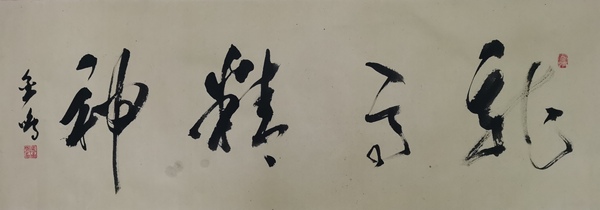 龍馬精神
金鳴